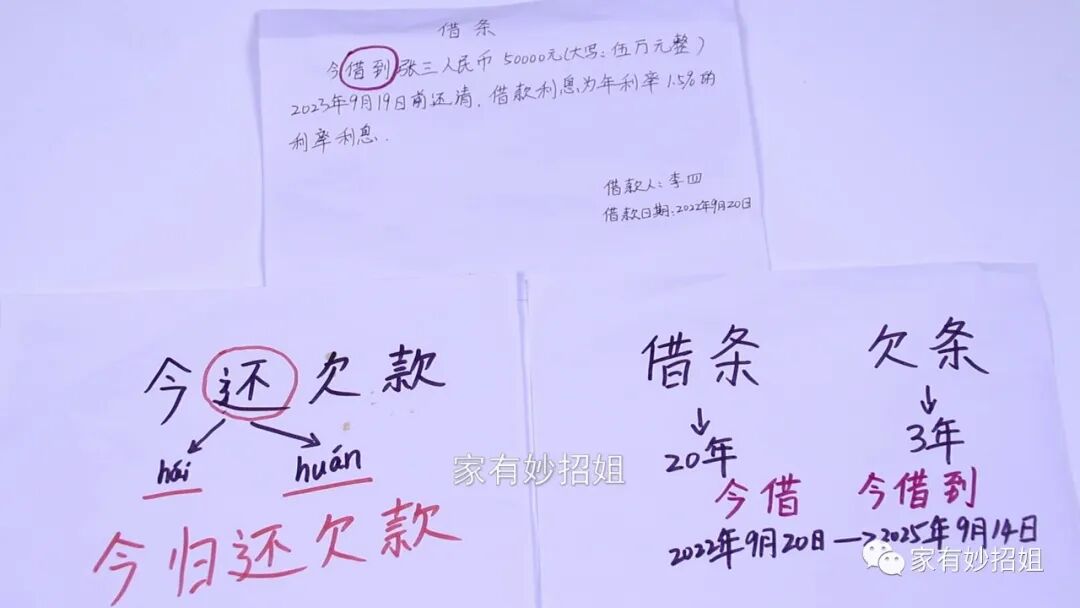 借条
今借到张三人民币50000元(大写:伍万元整)
2023年9月19日前还清.借款利息为年利率1.5%的
利率利息.
借款人:李四
借款日期:2022年9月20日
今还欠款
hái huán
今归还欠款
借条 欠条
20年 3年
今借 今借到
2022年9月20日→2025年9月14日
家有妙招姐
家有妙招姐